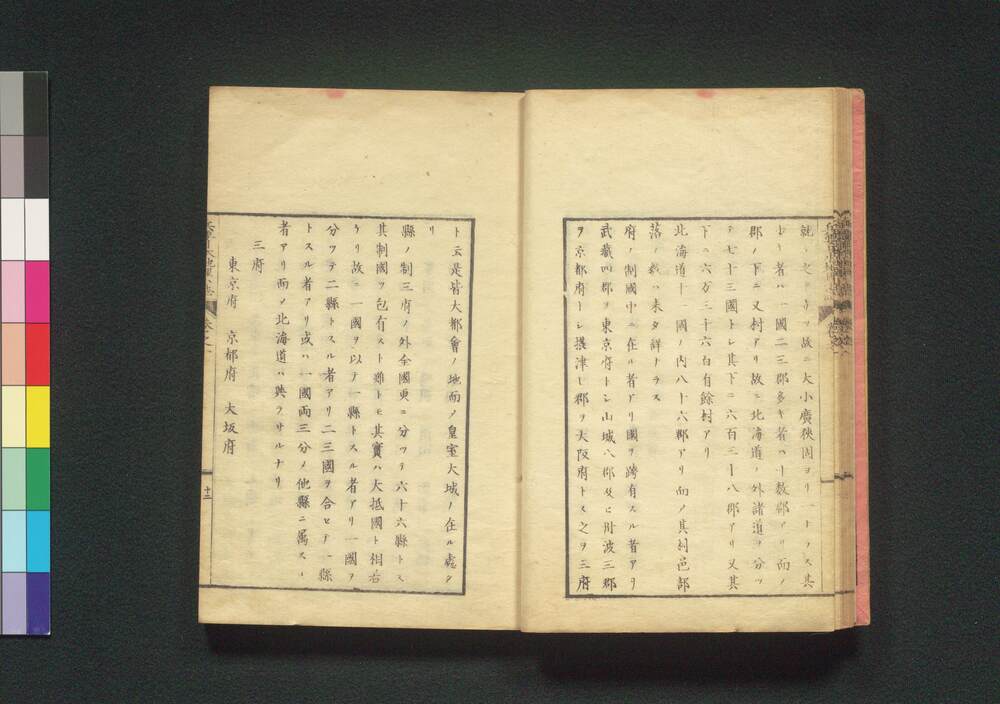 就テ之ヲ
故ニ大小廣狹固ヨリ一ナラス其
者ハ一國二三郡多キ者ハ十數郡アリ而ノ
郡ノ下ニ又村アリ故ニ北海道ノ外諸道ヲ分ツ
テ七十三國トシ其下ニ六百三十八郡アリ又其
下ニ六万三十六百有餘村アリ
北海道十一國ノ内八十六郡アリ而ノ其村邑部
落ノ數ハ未タ詳ナラス
府ノ制國中ニ在ル者アリ國ヲ跨有スル者アリ
武藏四郡ヲ東京府トシ山城八郡及ヒ丹波三郡
ヲ京都府トシ摂津七郡ヲ大阪府トス之ヲ三府
ト云是皆大都會ノ地而ノ皇室大城ノ在ル處ナ
リ
縣ノ制三府ノ外全國更ニ分ツテ六十六縣トス
其制國ヲ包有スト雖トモ其實ハ大抵國ト相若
ケリ故ニ一國ヲ以テ一縣トスル者アリ一國ヲ
分ツテ二縣トスル者アリ二三國ヲ合セテ一縣
トスル者アリ或ハ一國兩三分ノ他縣ニ属スル
者アリ而ノ北海道ハ與ラサルナリ
三府
東京府　京都府　大坂府
十二